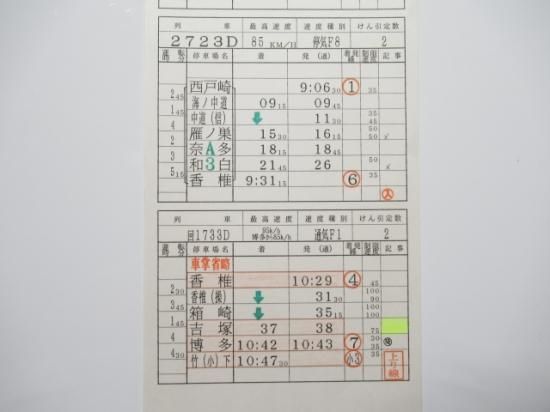 列車 最高速度 速度種別 けん引定数
2723D 85 KM/H 停気F8 2
運転時分 停車場名 着 発(通) 着発線 制限速度 記事
西戸崎 9:06 30 ① 35
2 45 海ノ中道 09 15 09 45
1 45 中道(信) ↓ 11 30 45
4 雁ノ巣 15 30 16 15 50 35
2 奈多 18 15 18 45
3 和白 21 45 26 50
5 15 香椎 9:31 15 ⑥ 35
A
3
入
列車 最高速度 速度種別 けん引定数
回1733D 95k/h 博多から85k/h 通気F1 2
運転時分 停車場名 着 発(通) 着発線 制限速度 記事
車掌省略
香椎 10:29 ④ 45
2 30 香椎(操) ↓ 31 30 100 90
3 45 箱崎 ↓ 35 15 100
1 45 吉塚 37 38 75
4 博多 10:42 10:43 ⑦ 30 35
4 30 竹(小)下 10:47 30 小3 35
上り線